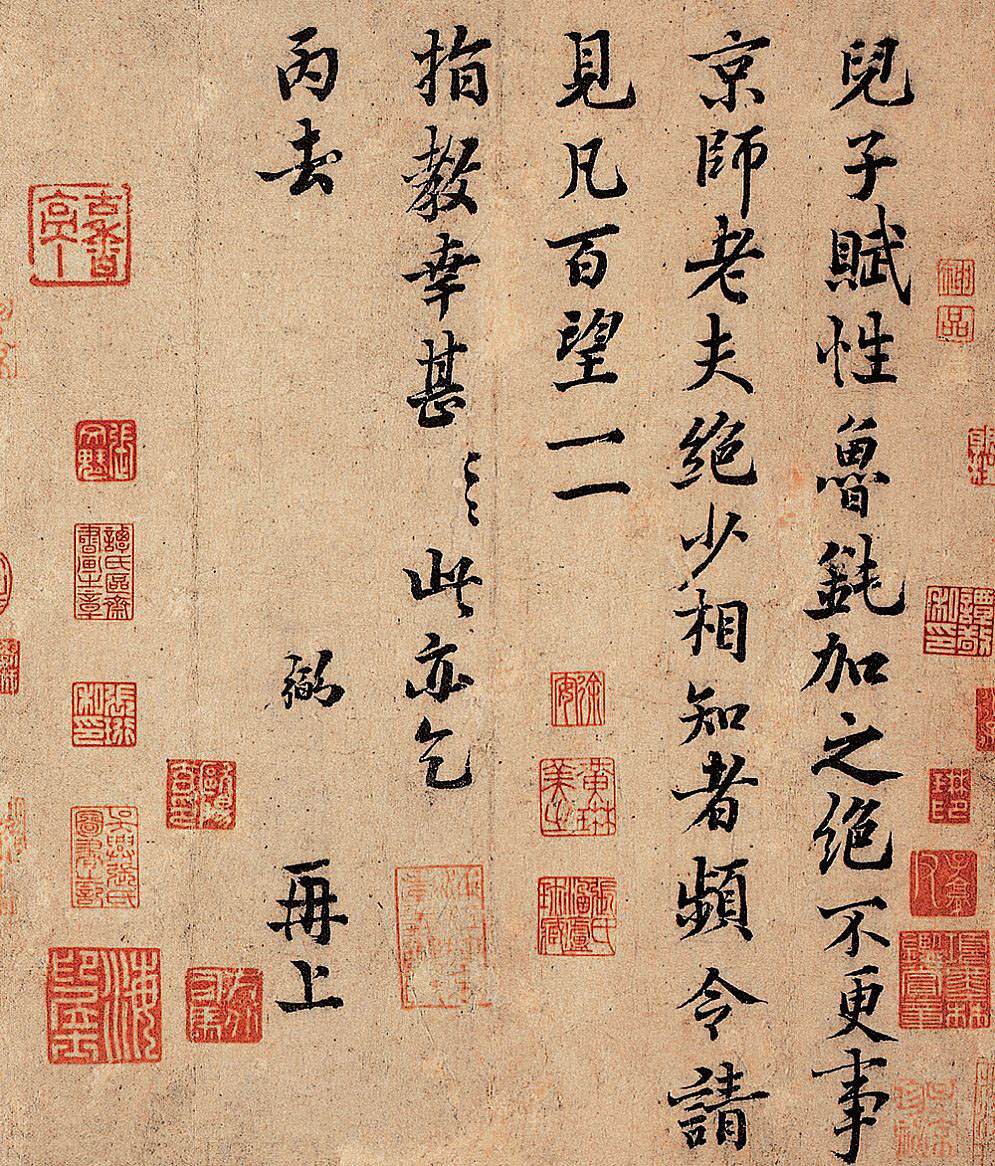 兒子賦性魯鈍加之絕不更事
京師老夫絕少相知者頻令請
見凡百望一一
指教幸甚〻此亦乞
丙去
弼
再上
神
品